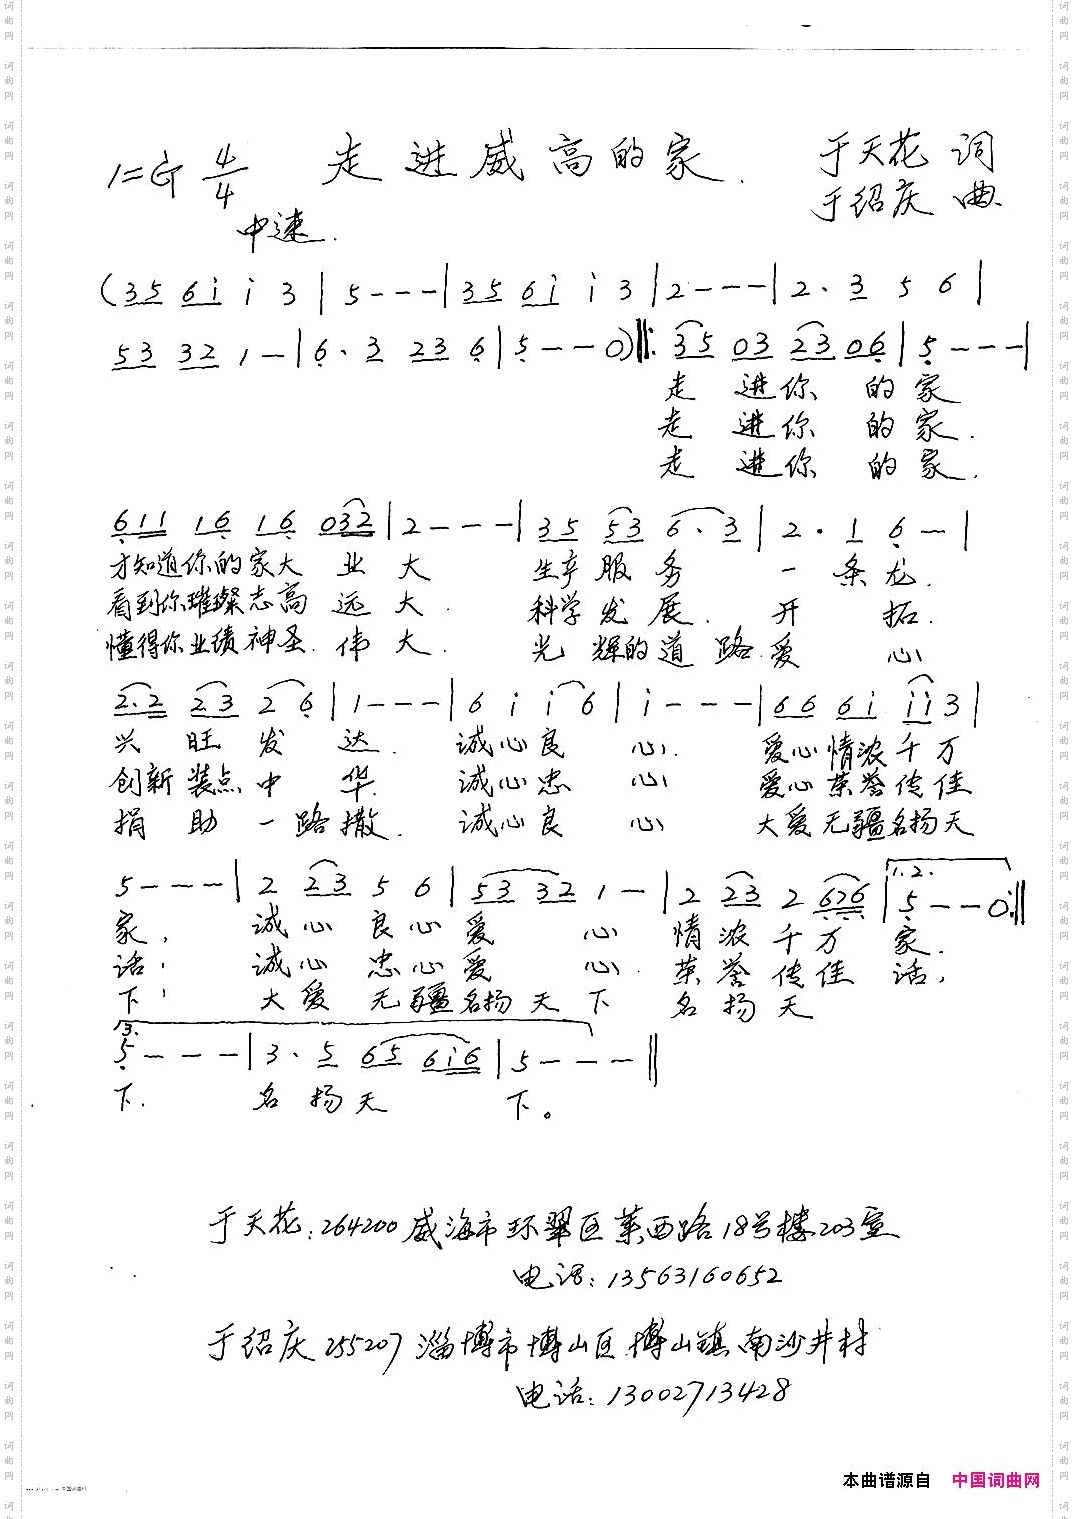 1=G 4/4 走进威高的家 于天花 词
中速 于绍庆 曲
(35 6i i 3 | 5 - - - | 35 6i i 3 | 2 - - - | 2 · 3 5 6 |
53 32 1 - | 6 · 3 23 6 | 5 - - 0) ‖: 35 03 23 06 | 5 - - - |
走 进你 的家
走 进你 的家.
走 进你 的家.
611 16 16 032 | 2 - - - | 35 53 6 · 3 | 2 · 1 6 - |
才知道你的家大 业 大 生产 服 务 一 条龙.
看到你璀璨志高 远 大. 科学 发 展. 开 拓.
懂得你业绩神圣. 伟 大. 光 辉的道 路. 爱 心
2·2 23 2 6 | 1 - - - | 6 i i 6 | i - - - | 66 6i ii 3 |
兴 旺 发 达. 诚心良 心. 爱心情浓千万
创新 装点 中 华. 诚心忠 心 爱心荣誉传佳
捐 助 一路撒. 诚心良 心 大爱无疆名扬天
5 - - - | 2 23 5 6 | 53 32 1 - | 2 23 2 626 | 1.2. 5 - - 0 :‖
家, 诚心 良心 爱 心 情浓千万 家.
话; 诚心 忠心 爱 心. 荣誉传佳 话;
下; 大爱 无疆名扬天下 名扬天
3. 5 - - - | 3 · 5 65 6i6 | 5 - - - ‖
下. 名扬天 下。
于天花:264200威海市环翠区莱西路18号楼203室
电话:13563160652
于绍庆255207淄博市博山区博山镇南沙井村
电话:13002713428
本曲谱源自 中国词曲网